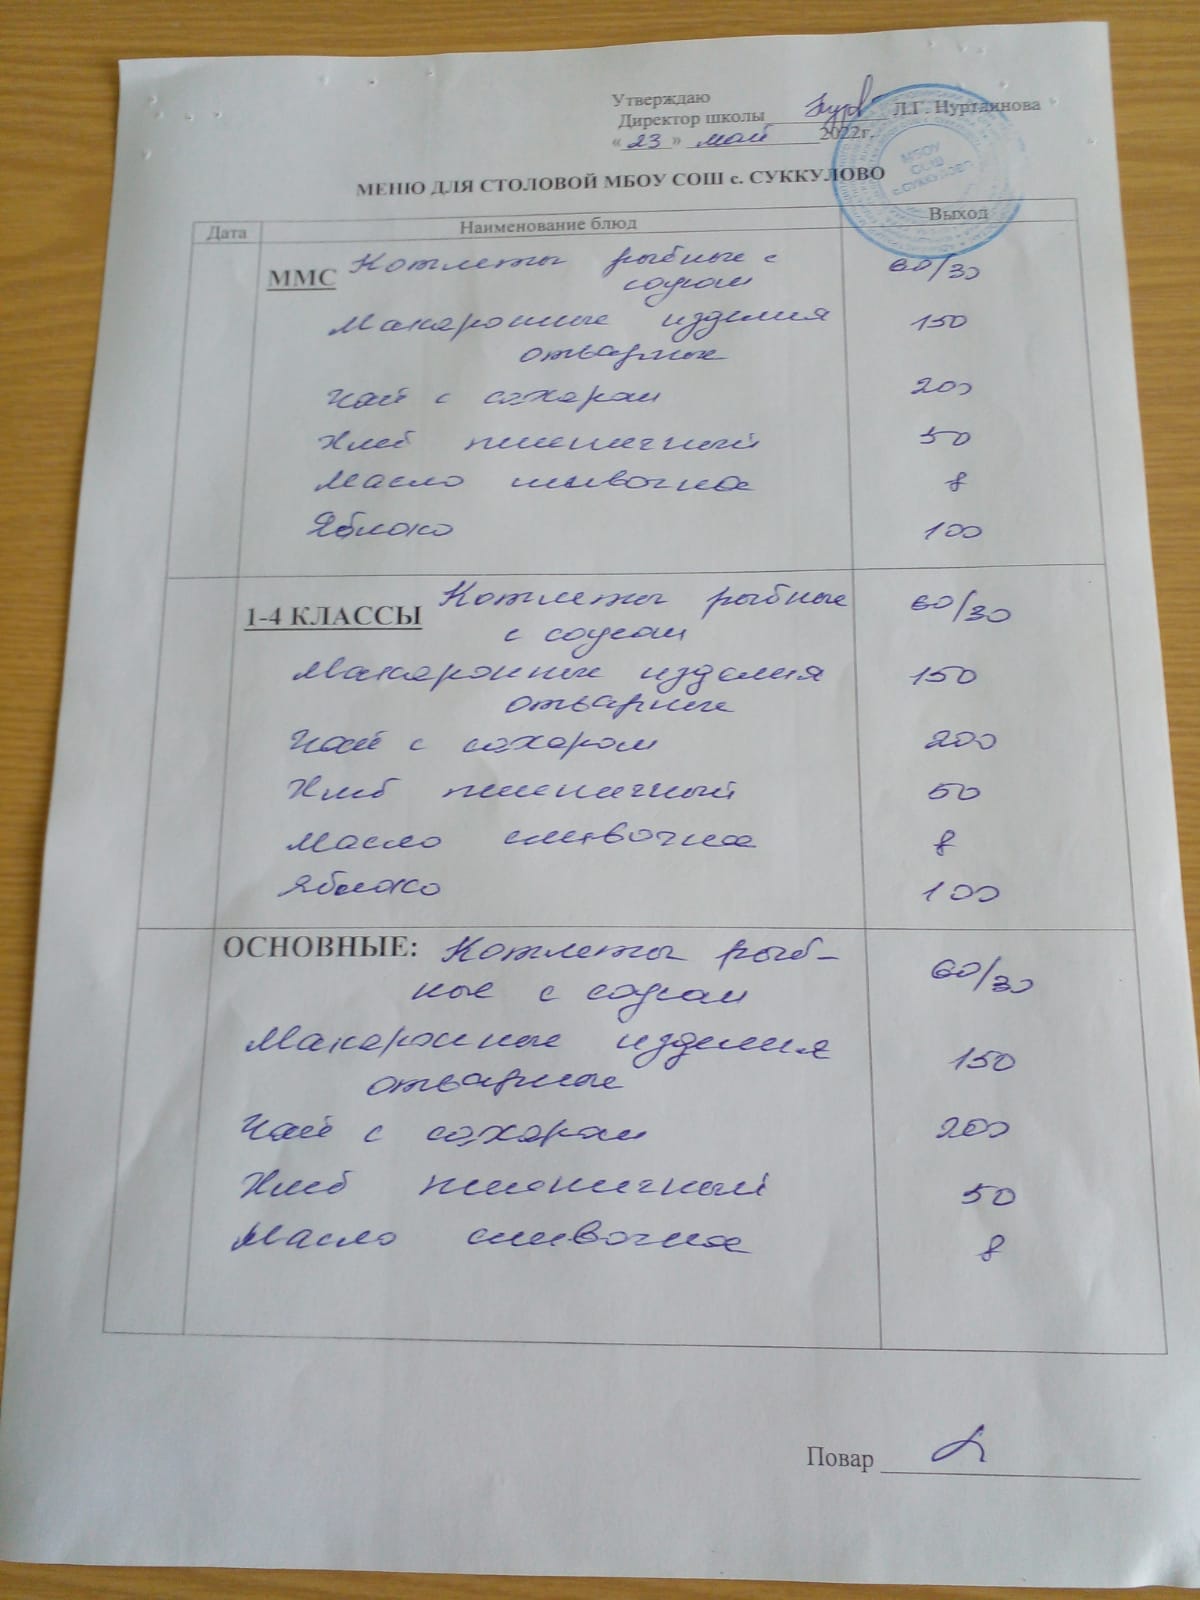 Утверждаю
Директор школы Л.Г. Нуртдинова
« 23 » май 2022г.
МБОУ
СОШ
с.СУККУЛОВО
МЕНЮ ДЛЯ СТОЛОВОЙ МБОУ СОШ с. СУККУЛОВО
Дата Наименование блюд Выход
ММС Котлеты рыбные с 60/30
соусом
Макаронные изделия 150
отварные
Чай с сахаром 200
Хлеб пшеничный 50
Масло сливочное 8
Яблоко 100
1-4 КЛАССЫ Котлеты рыбные 60/30
с соусом
Макаронные изделия 150
отварные
Чай с сахаром 200
Хлеб пшеничный 50
Масло сливочное 8
Яблоко 100
ОСНОВНЫЕ: Котлеты рыб- 60/30
ные с соусом
Макаронные изделия 150
отварные
Чай с сахаром 200
Хлеб пшеничный 50
Масло сливочное 8
Повар